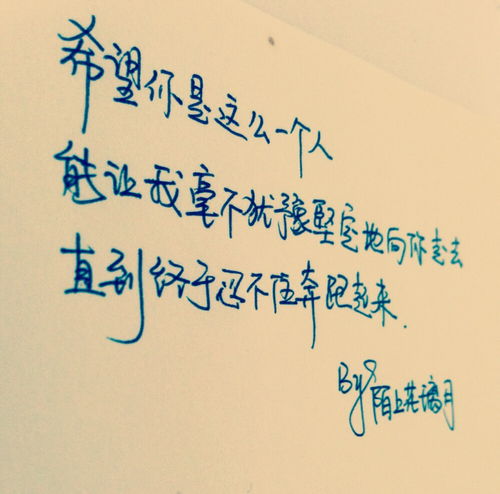 希望你是这么一个人
能让我毫不犹豫坚定地向你走去
直到终于忍不住奔跑起来.
By 陌上花璃月